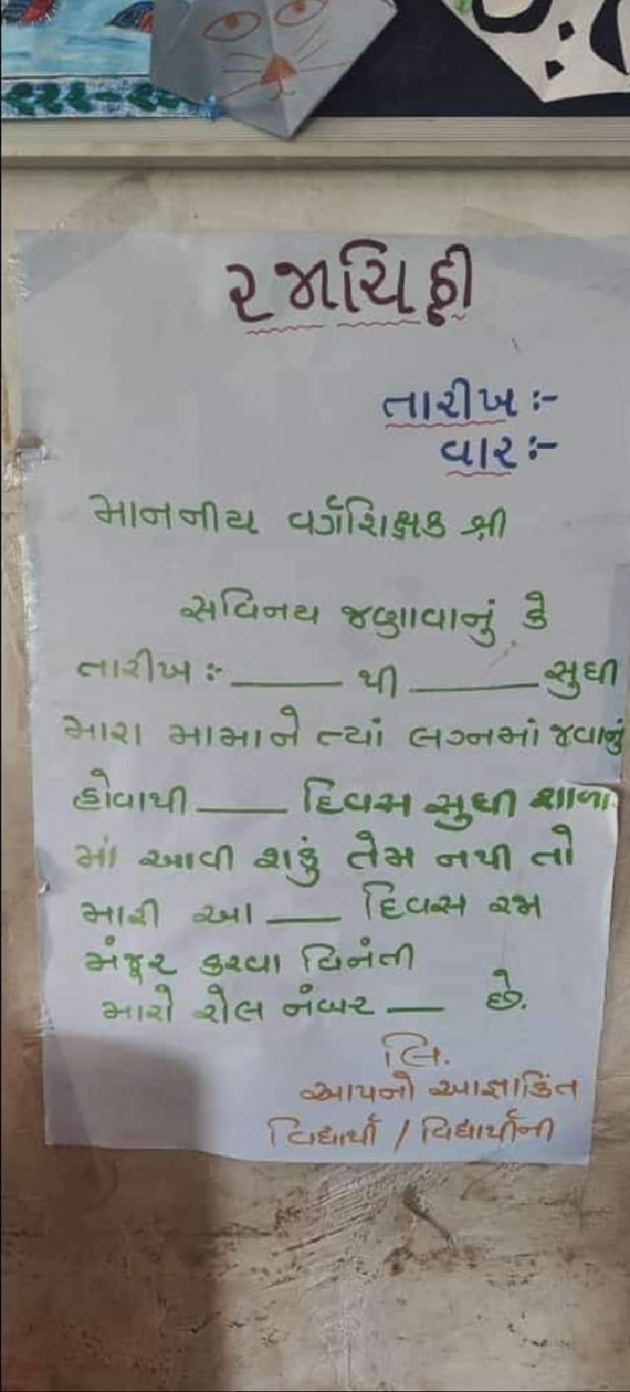 રજાચિઠ્ઠી
તારીખ :-
વાર :-
માનનીય વર્ગશિક્ષક શ્રી
સવિનય જણાવાનું કે
તારીખ :- ______ થી ______ સુધી
મારા મામાને ત્યાં લગ્નમાં જવાનું
હોવાથી ____ દિવસ સુધી શાળા
માં આવી શકું તેમ નથી તો
મારી આ ___ દિવસ રજા
મંજૂર કરવા વિનંતી
મારો રોલ નંબર __ છે.
લિ.
આપનો આજ્ઞાકિંત
વિદ્યાર્થી / વિદ્યાર્થીની